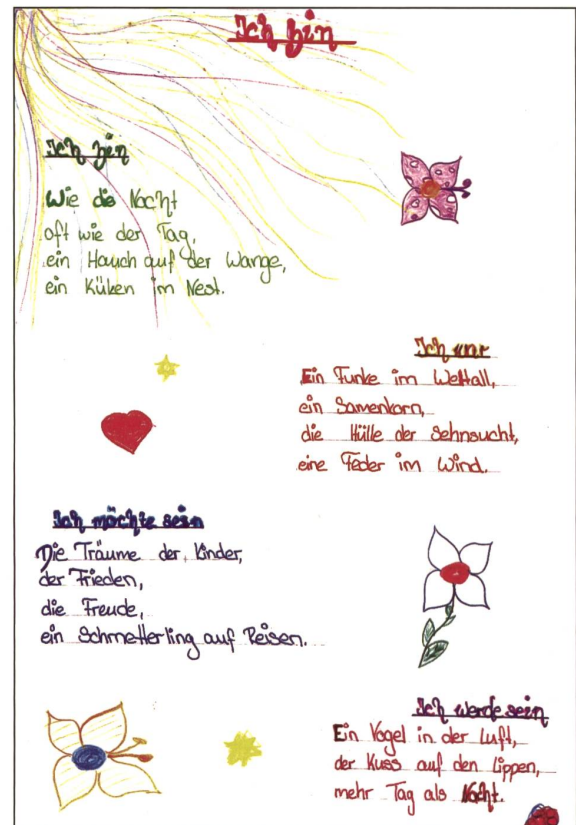 Ich bin
Ich bin
Wie die Nacht
oft wie der Tag,
ein Hauch auf der Wange,
ein Küken im Nest.
Ich war
Ein Funke im Weltall,
ein Samenkorn,
die Hülle der Sehnsucht,
eine Feder im Wind.
Ich möchte sein
Die Träume der Kinder,
der Frieden,
die Freude,
ein Schmetterling auf Reisen.
Ich werde sein
Ein Vogel in der Luft,
der Kuss auf den Lippen,
mehr Tag als Nacht.